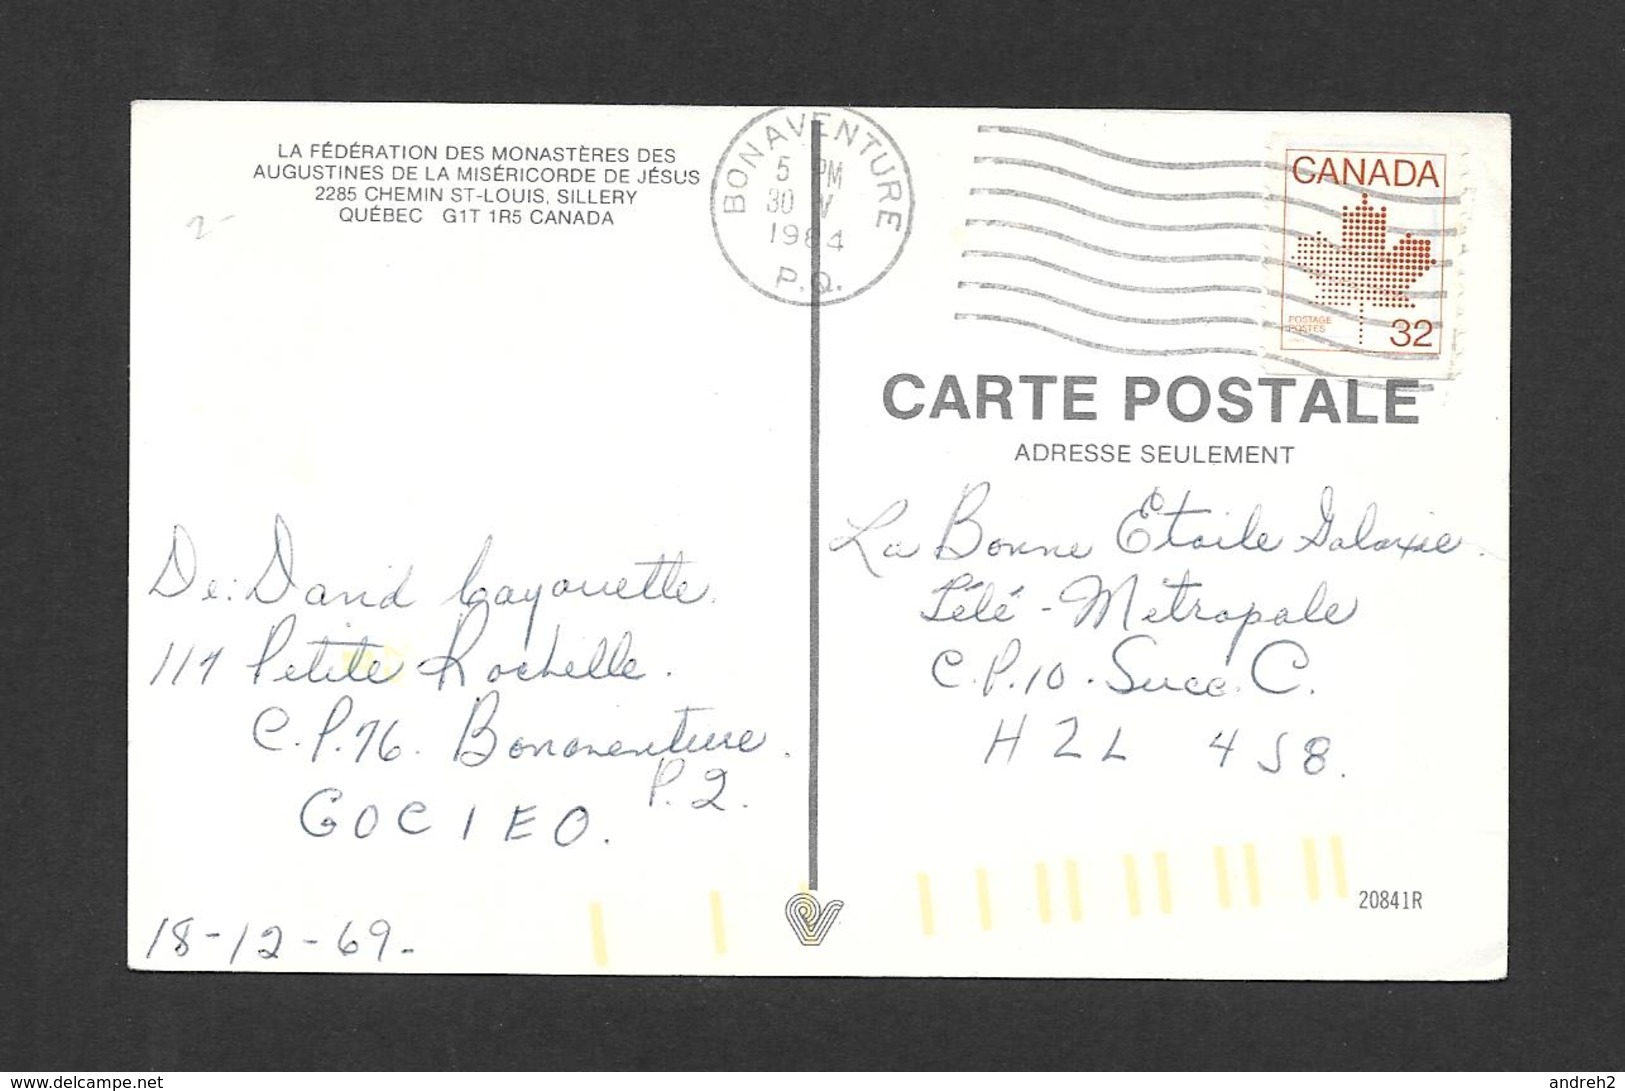 LA FÉDÉRATION DES MONASTÈRES DES
AUGUSTINES DE LA MISÉRICORDE DE JÉSUS
2285 CHEMIN ST-LOUIS, SILLERY
QUÉBEC G1T 1R5 CANADA
2-
BONAVENTURE
5 PM
30 V
1984
P.Q.
CANADA
POSTAGE
POSTES
32
CARTE POSTALE
ADRESSE SEULEMENT
La Bonne Etoile Galaxie.
Télé-Métropole
C.P.10. Succ. C.
H2L 4S8.
De: David Cayouette.
117 Petite Rochelle.
C.P.76. Bonaventure.
P.Q.
GOC 1EO.
18-12-69-
20841R
www.delcampe.net
andreh2